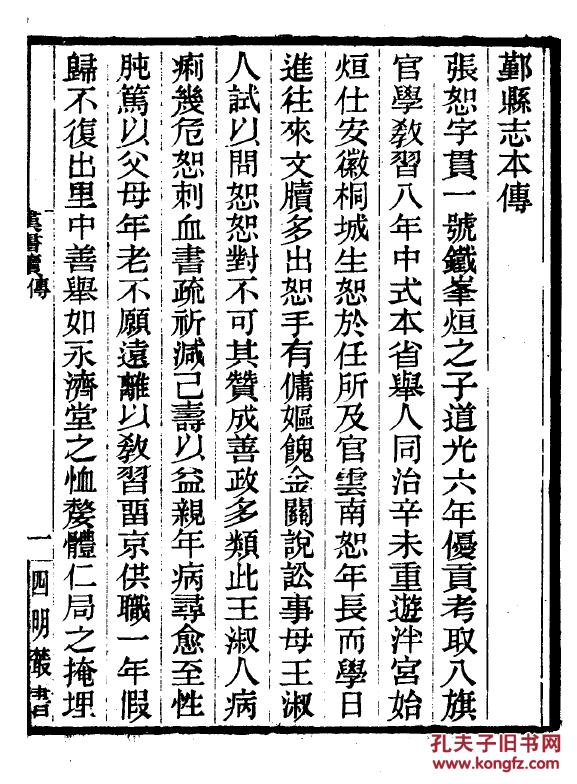 鄞縣志本傳
張恕字貫一號鐵峯烜之子道光六年優貢考取八旗
官學敎習八年中式本省舉人同治辛未重遊泮宮始
烜仕安徽桐城生恕於任所及官雲南恕年長而學日
進往來文牘多出恕手有傭嫗餽金關說訟事母王淑
人試以問恕恕對不可其贊成善政多類此王淑人病
痢幾危恕刺血書疏祈減己壽以益親年病尋愈至性
肫篤以父母年老不願遠離以敎習畱京供職一年假
歸不復出里中善舉如永濟堂之恤嫠體仁局之掩埋
漢書讀 傳
一
四明叢書
孔夫子旧书网
www.kongfz.com